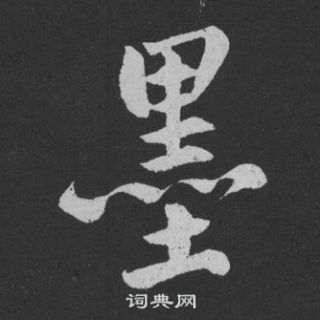 墨
词典网